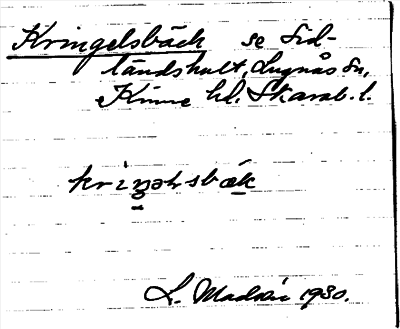 Kringelsbäck se Sid-
landshult, Lugnås sn,
Kinne hd. Skarab. l.
kriŋəlsbæk
L. 1930.